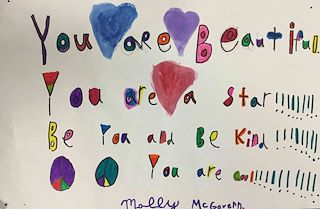 You are Beautiful
You are a star!!!!!!!!!!
Be You and Be Kind!!!!!!!!!!
You are cool!!!!!!!!!!
Molly McGovern